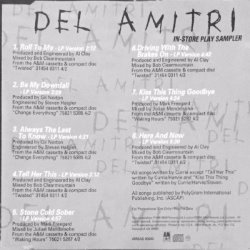 DEL AMITRI
IN-STORE PLAY SAMPLER
1. Roll To Me - LP Version 2:12
Produced and Engineered by Al Clay
Mixed by Bob Clearmountain
From the A&M cassette & compact disc
"Twisted" 31454 0311 4/2
2. Be My Downfall
- LP Version
Produced by Gil Norton
Engineered by Steven Haigler
From the A&M cassette & compact disc
"Change Everything" 75021 5385 4/2
3. Always The Last
To Know - LP Version 4:21
Produced by Gil Norton
Engineered by Steven Haigler
From the A&M cassette & compact disc
"Change Everything" 75021 5385 4/2
4. Tell Her This - LP Version
Produced and Engineered by Al Clay
Mixed by Bob Clearmountain
From the A&M cassette & compact disc
"Twisted" 31454 0311 4/2
5. Stone Cold Sober
- LP Version
Produced by
Mixed by Julian Mendelsohn
From the A&M cassette & compact disc
"Waking Hours" 75021 5287 4/2
Driving With The
Brakes On - LP Version
Produced and Engineered by Al Clay
Mixed by Bob Clearmountain
From the A&M cassette & compact disc
"Twisted" 31454 0311 4/2
7. Kiss This Thing Goodbye
- LP Version
Produced by Mark Freegard
Mixed by Julian Mendelsohn
From the A&M cassette & compact disc
"Waking Hours" 75021 5287 4/2
8. Here And Now
- LP Version
Produced and Engineered by Al Clay
Mixed by Bob Clearmountain
From the A&M cassette & compact disc
"Twisted" 31454 0311 4/2
All songs written by Currie except "Tell Her This"
by Currie/Harvie and "Kiss This Thing
Goodbye" written by Currie/Harvie/Slaven.
All songs published by PolyGram International
Publishing, Inc. (ASCAP).